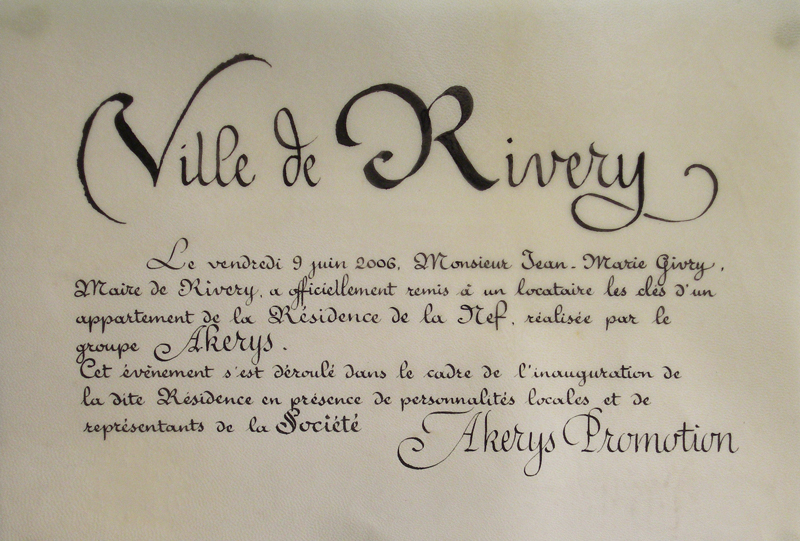 Ville de Rivery
Le vendredi 9 juin 2006, Monsieur Jean-Marie Givry,
Maire de Rivery, a officiellement remis à un locataire les clés d'un
appartement de la Résidence de la Nef, réalisée par le
groupe Akerys.
Cet évènement s'est déroulé dans le cadre de l'inauguration de
la dite Résidence en présence de personnalités locales et de
représentants de la Société Akerys Promotion